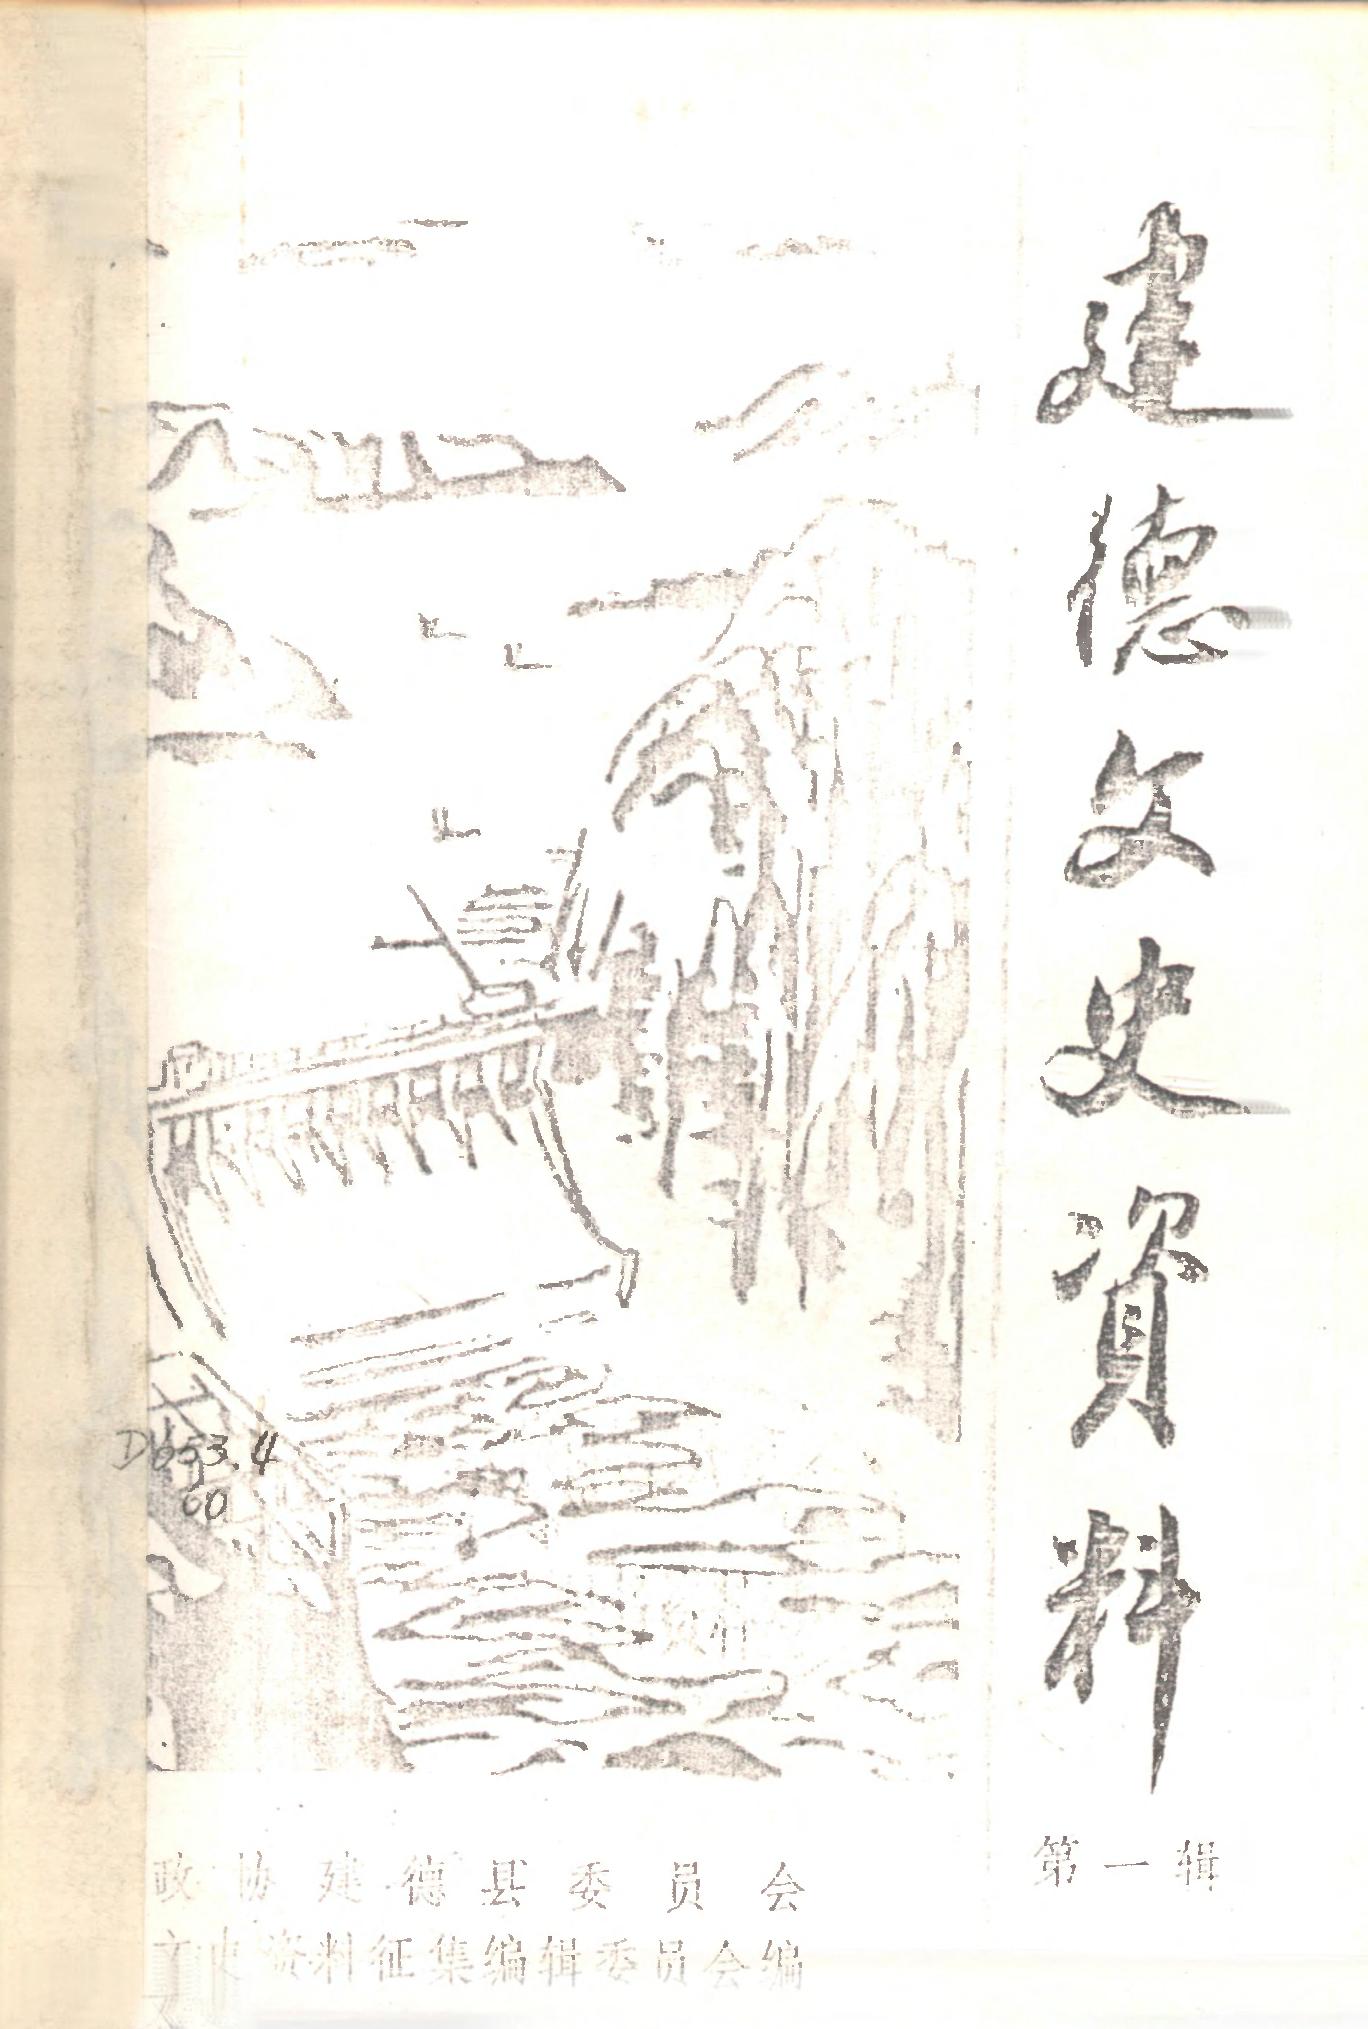 建德文史資料
第一辑
D653.4
60
政协建德县委员会
文史资料征集编辑委员会编